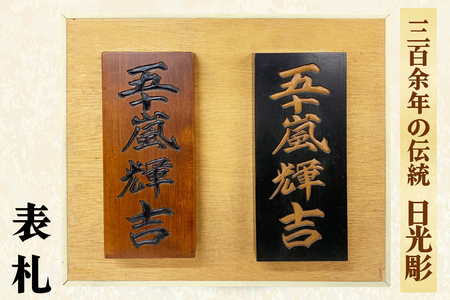 三百余年の伝統 日光彫
五十嵐輝吉
五十嵐輝吉
表札